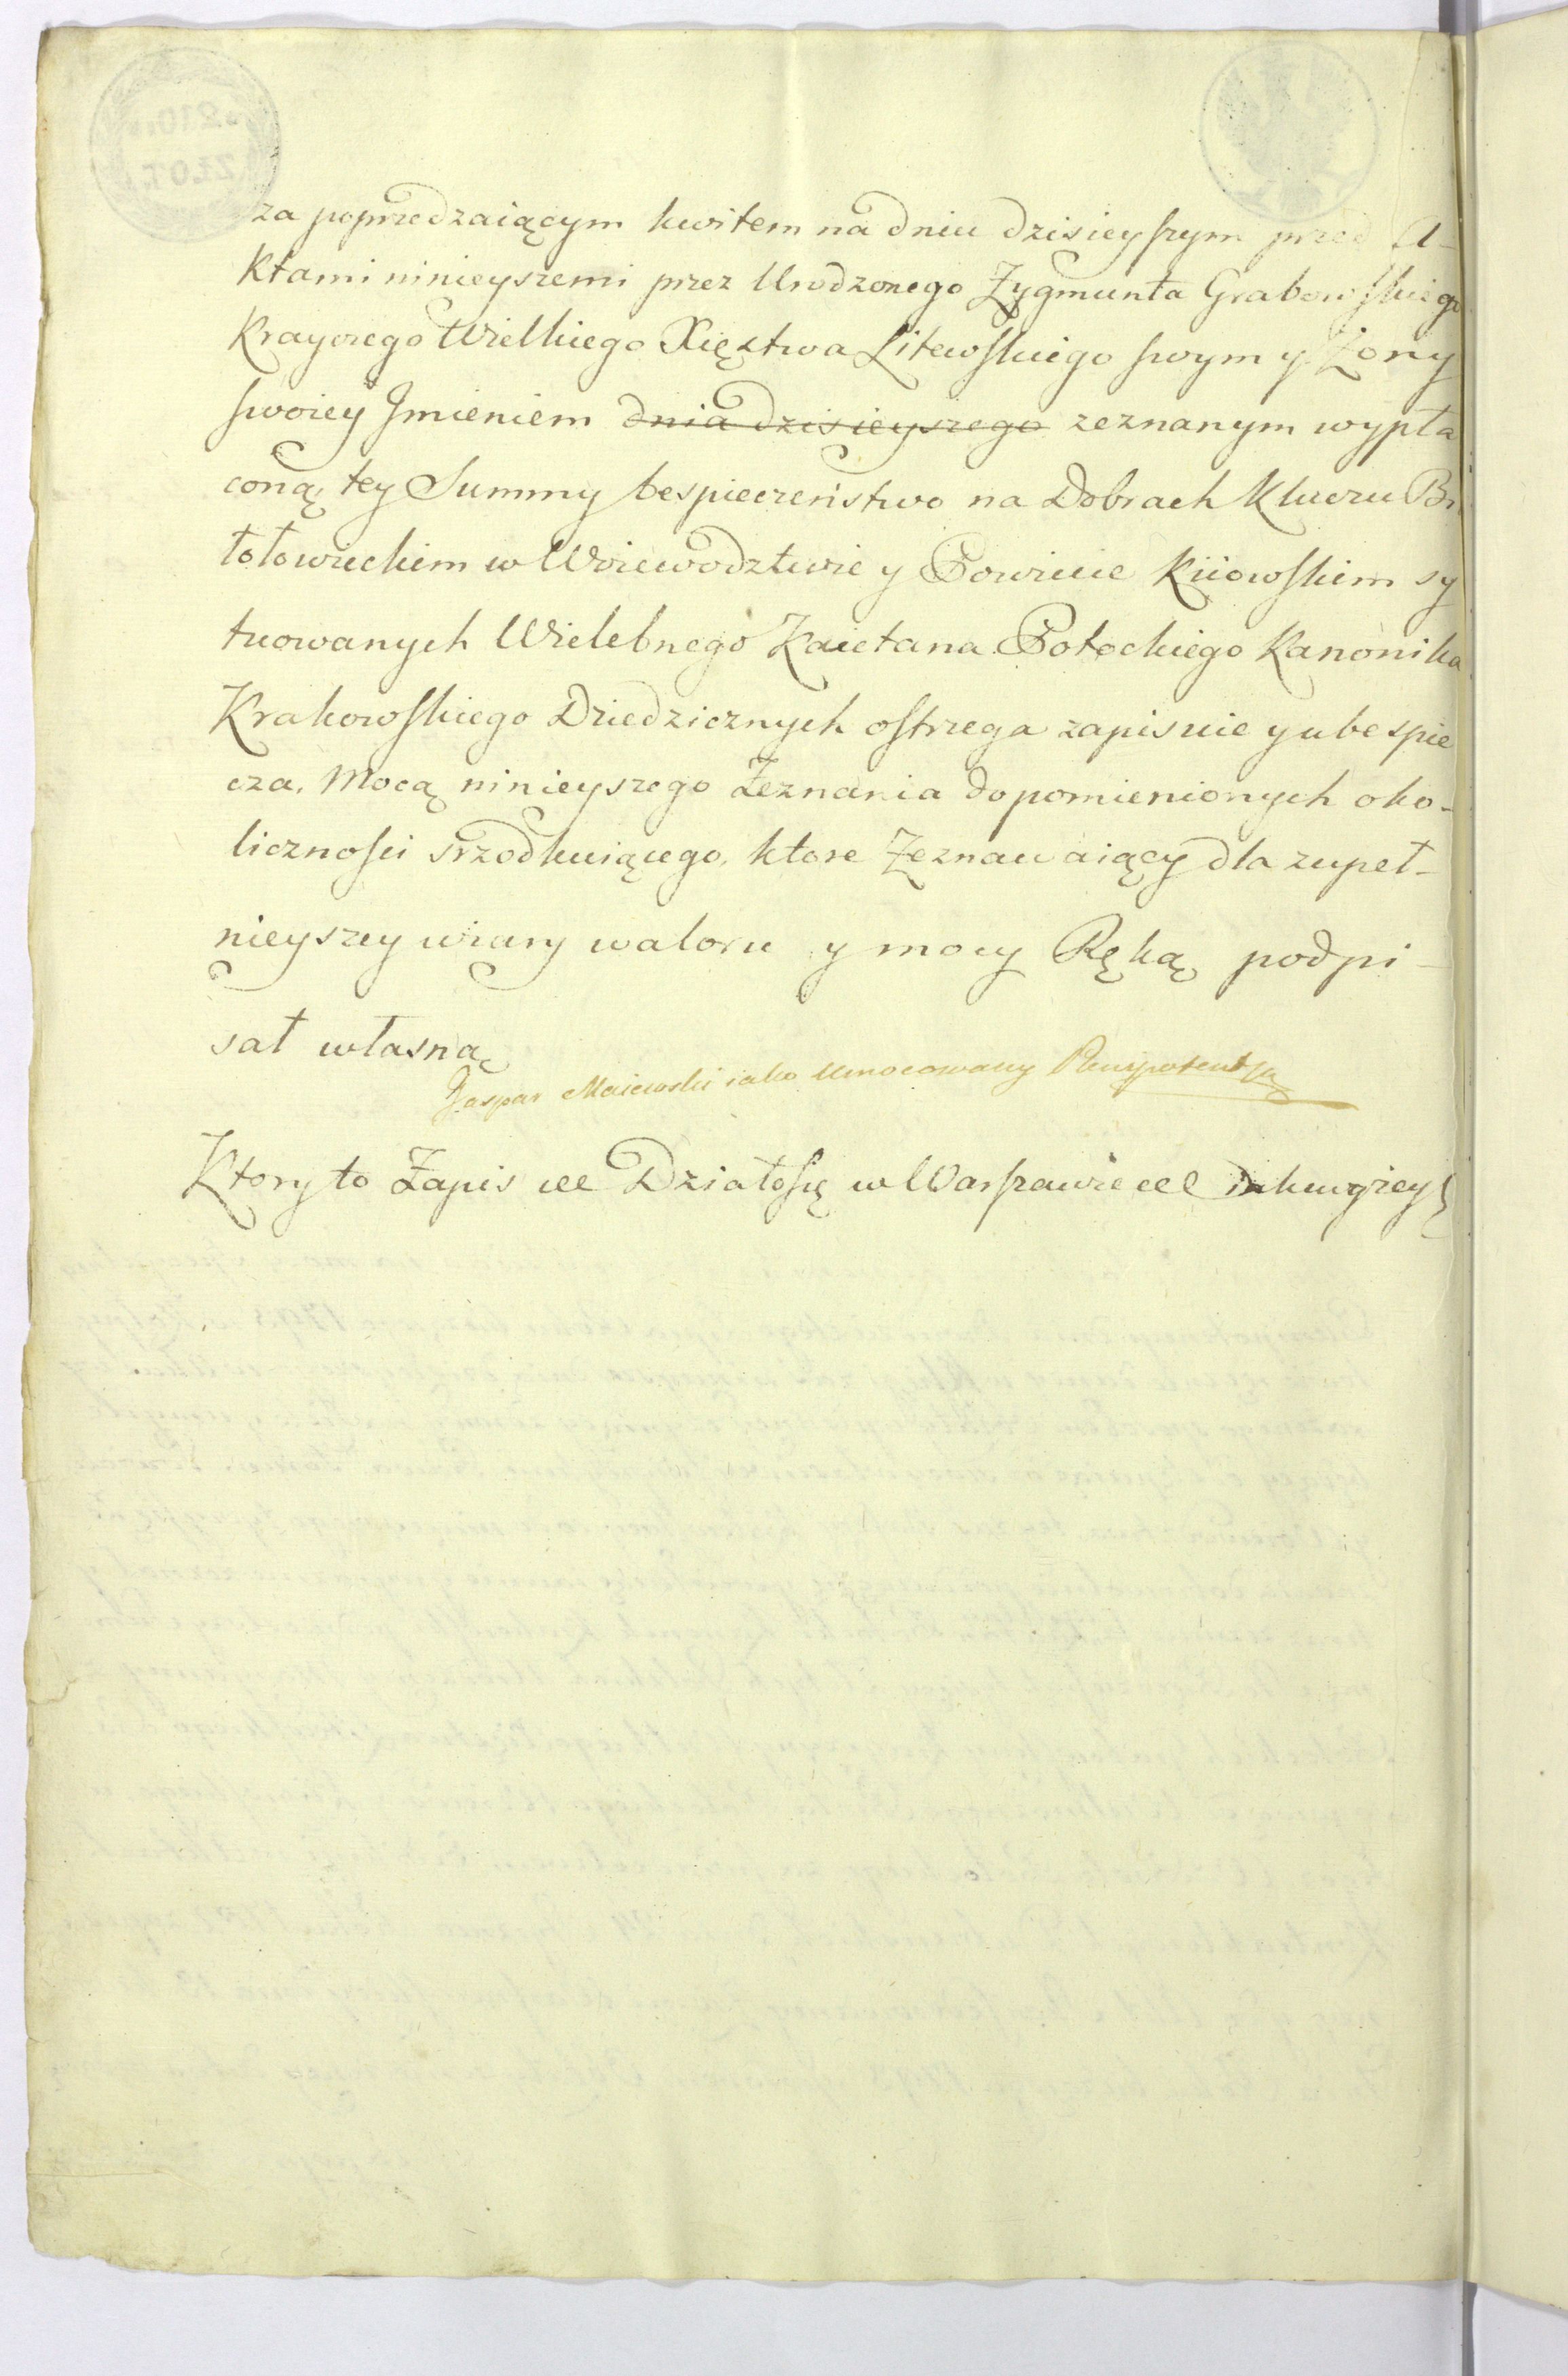 za poprzedzaiącym kwitem na dniu dzisieyszym przed A-
ktami ninieyszemi przez Urodzonego Zygmunta Grabowskiego
Krayczego Wielkiego Xięztwa Litewskiego swym y Żony
swoiey Jmieniem dnia dzisieyszego zeznanym wypła
coną, tey Summy bespieczeństwo na Dobrach Kluczu
tołowieckim w Woiewodztwie y Powiecie Kiiowskim sy
tuowanych Wielebnego Kaietana Potockiego Kanonika
Krakowskiego Dziedzicznych ostrzega zapisuie y ubespie
cza, Mocą ninieyszego Zeznania do pomienionych oko-
liczności srzodkuiącego, ktore Zeznawaiący dla zupeł-
nieyszey wiary waloru y mocy Ręką podpi-
sał własną
Gaspar Maiewski iako Umocowany Plenipotent
Ktory to Zapis etc Działosię w Warszawie etc